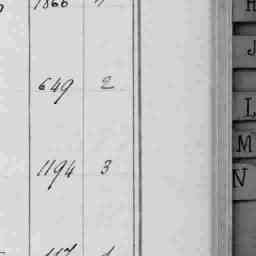 1866
649 2
1194 3
H
J
L
M
N